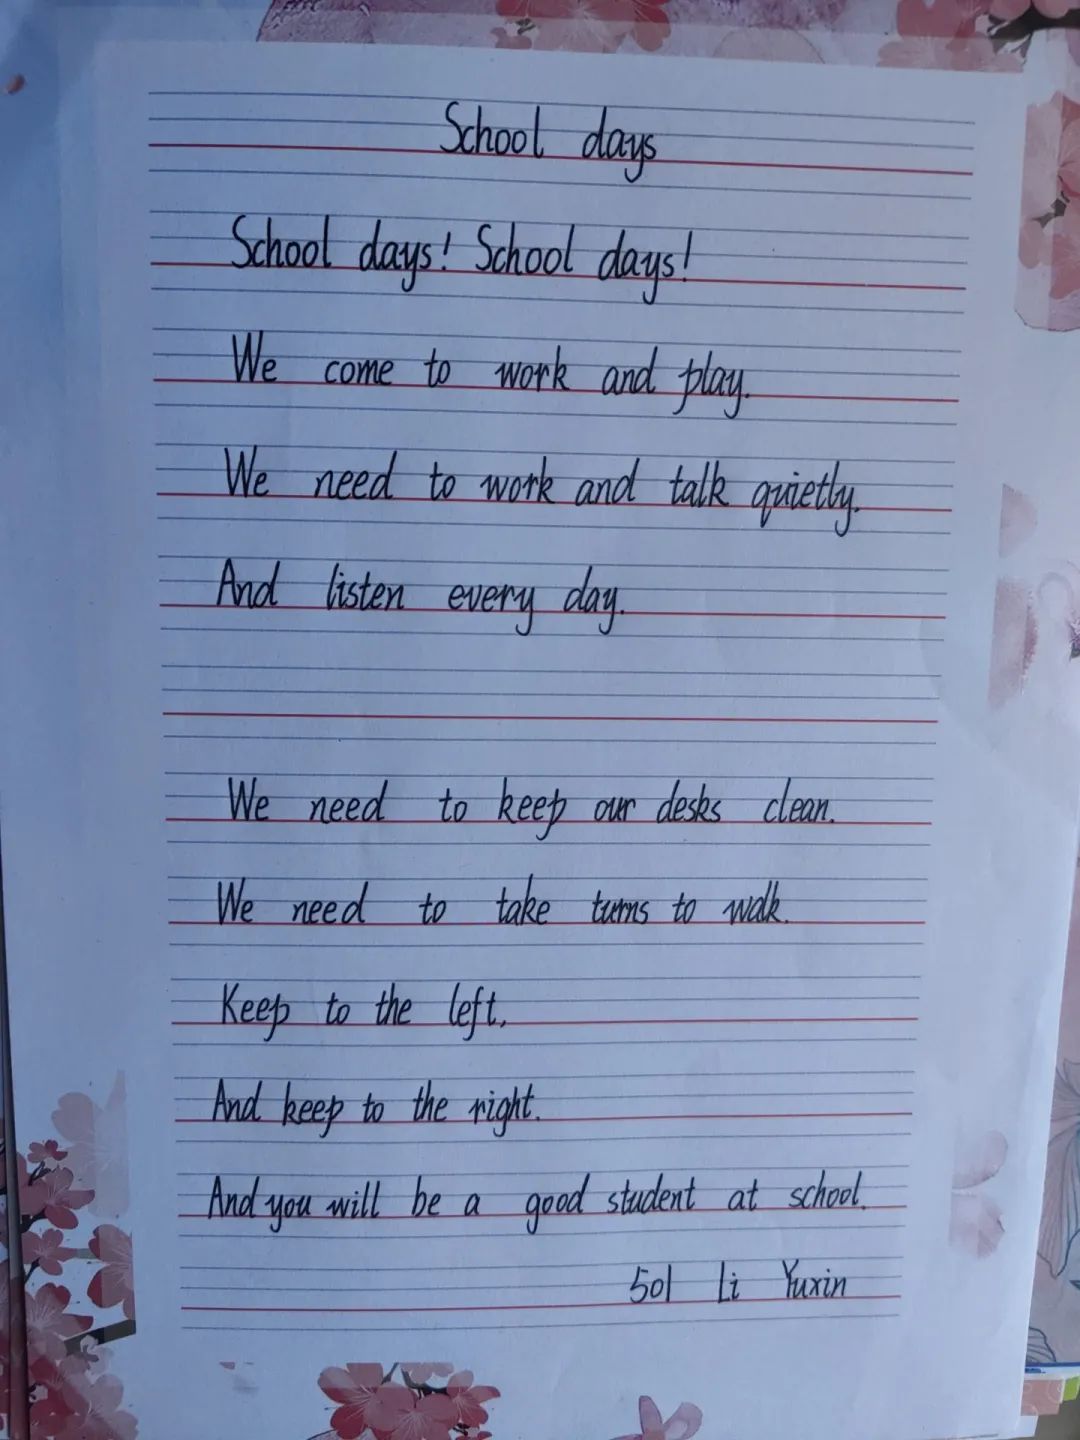 School days
School days! School days!
We come to work and play.
We need to work and talk quietly.
And listen every day.
We need to keep our desks clean.
We need to take turns to walk.
Keep to the left,
And keep to the right.
And you will be a good student at school.
501 Li Yuxin